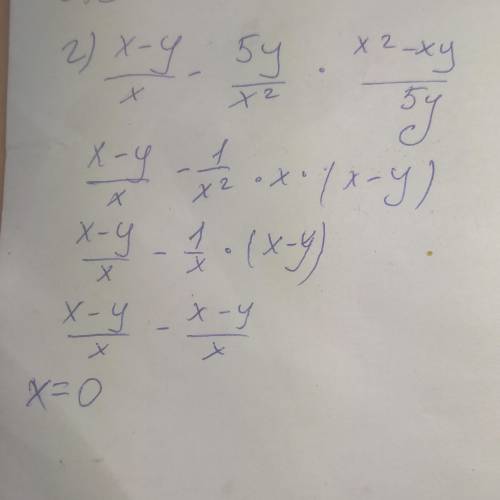 г) (x-y)/x - 5y/x² · (x²-xy)/5y
(x-y)/x - 1/x² · x · (x-y)
(x-y)/x - 1/x · (x-y)
(x-y)/x - (x-y)/x
x=0